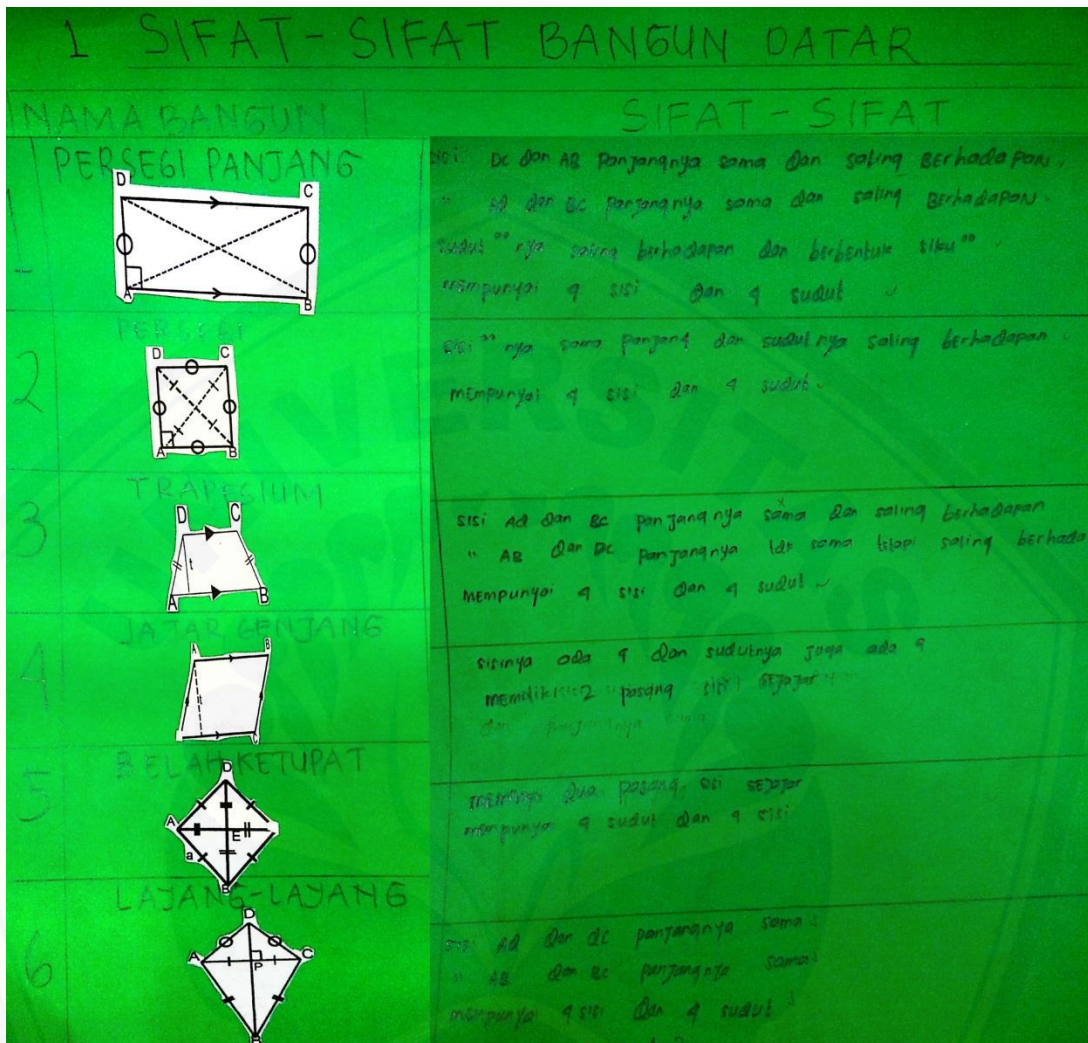 1 SIFAT-SIFAT BANGUN DATAR
NAMA BANGUN
SIFAT-SIFAT
1
PERSEGI PANJANG
D
C
A
B
sisi DC dan AB panjangnya sama dan saling BErhadapan
" AD dan BC panjangnya sama dan saling BErhadapan
sudut"nya saling berhadapan dan berbentuk siku"
mempunyai 4 sisi dan 4 sudut
2
PERSEGI
D
C
A
B
sisi"nya sama panjang dan sudutnya saling berhadapan
mempunyai 4 sisi dan 4 sudut
3
TRAPESIUM
D
C
t
A
B
sisi AD dan BC panjangnya sama dan saling berhadapan
" AB dan DC panjangnya tdk sama tetapi saling berhada
mempunyai 4 sisi dan 4 sudut
4
JAJAR GENJANG
A
B
t
C
sisinya ada 4 dan sudutnya juga ada 4
memiliki 2 pasang sisi sejajar
dan panjangnya sama
5
BELAH KETUPAT
D
A
E
a
B
dua pasang sisi sejajar
mempunyai 4 sudut dan 4 sisi
6
LAYANG-LAYANG
D
A
C
P
B
sisi AD dan dc panjangnya sama
" AB dan BC panjangnya sama
mempunyai 4 sisi dan 4 sudut
UNIVERSITAS